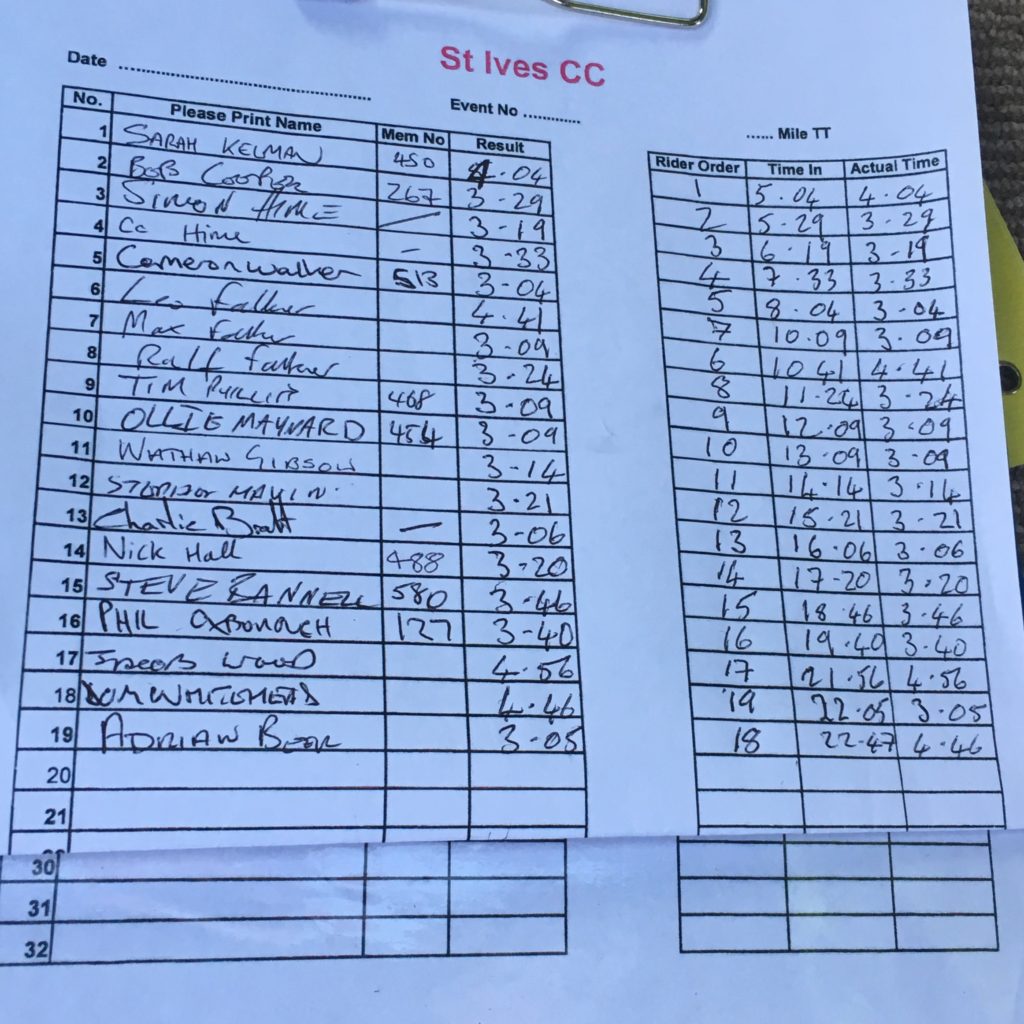 St Ives CC
Date ..............................
Event No ............
...... Mile TT
No. Please Print Name Mem No Result Rider Order Time In Actual Time
1 SARAH KELMAN 450 4.04 1 5.04 4.04
2 BOB COOPER 267 3-29 2 5-29 3-29
3 SIMON HIME — 3-19 3 6.19 3-19
4 Cc Hime - 3-33 4 7.33 3.33
5 Cameron walker 513 3-04 5 8.04 3-04
6 Leo Falkner 4.41 7 10.09 3-09
7 Max 3-09 6 10 41 4.41
8 Ralf 3-24 8 11-24 3-24
9 TIM 468 3-09 9 12.09 3-09
10 OLLIE MAYNARD 454 3-09 10 13-09 3-09
11 GIBSON 3-14 11 14.14 3-14
12 3-21 12 15.21 3-21
13 Charlie — 3-06 13 16.06 3-06
14 Nick Hall 488 3-20 14 17-20 3.20
15 STEVE BANNELL 580 3-46 15 18.46 3-46
16 PHIL 127 3-40 16 19.40 3.40
17 WOOD 4.56 17 21.56 4.56
18 WHITEHEAD 4.46 19 22.05 3.05
19 ADRIAN BEER 3-05 18 22-47 4.46
20
21
30
31
32